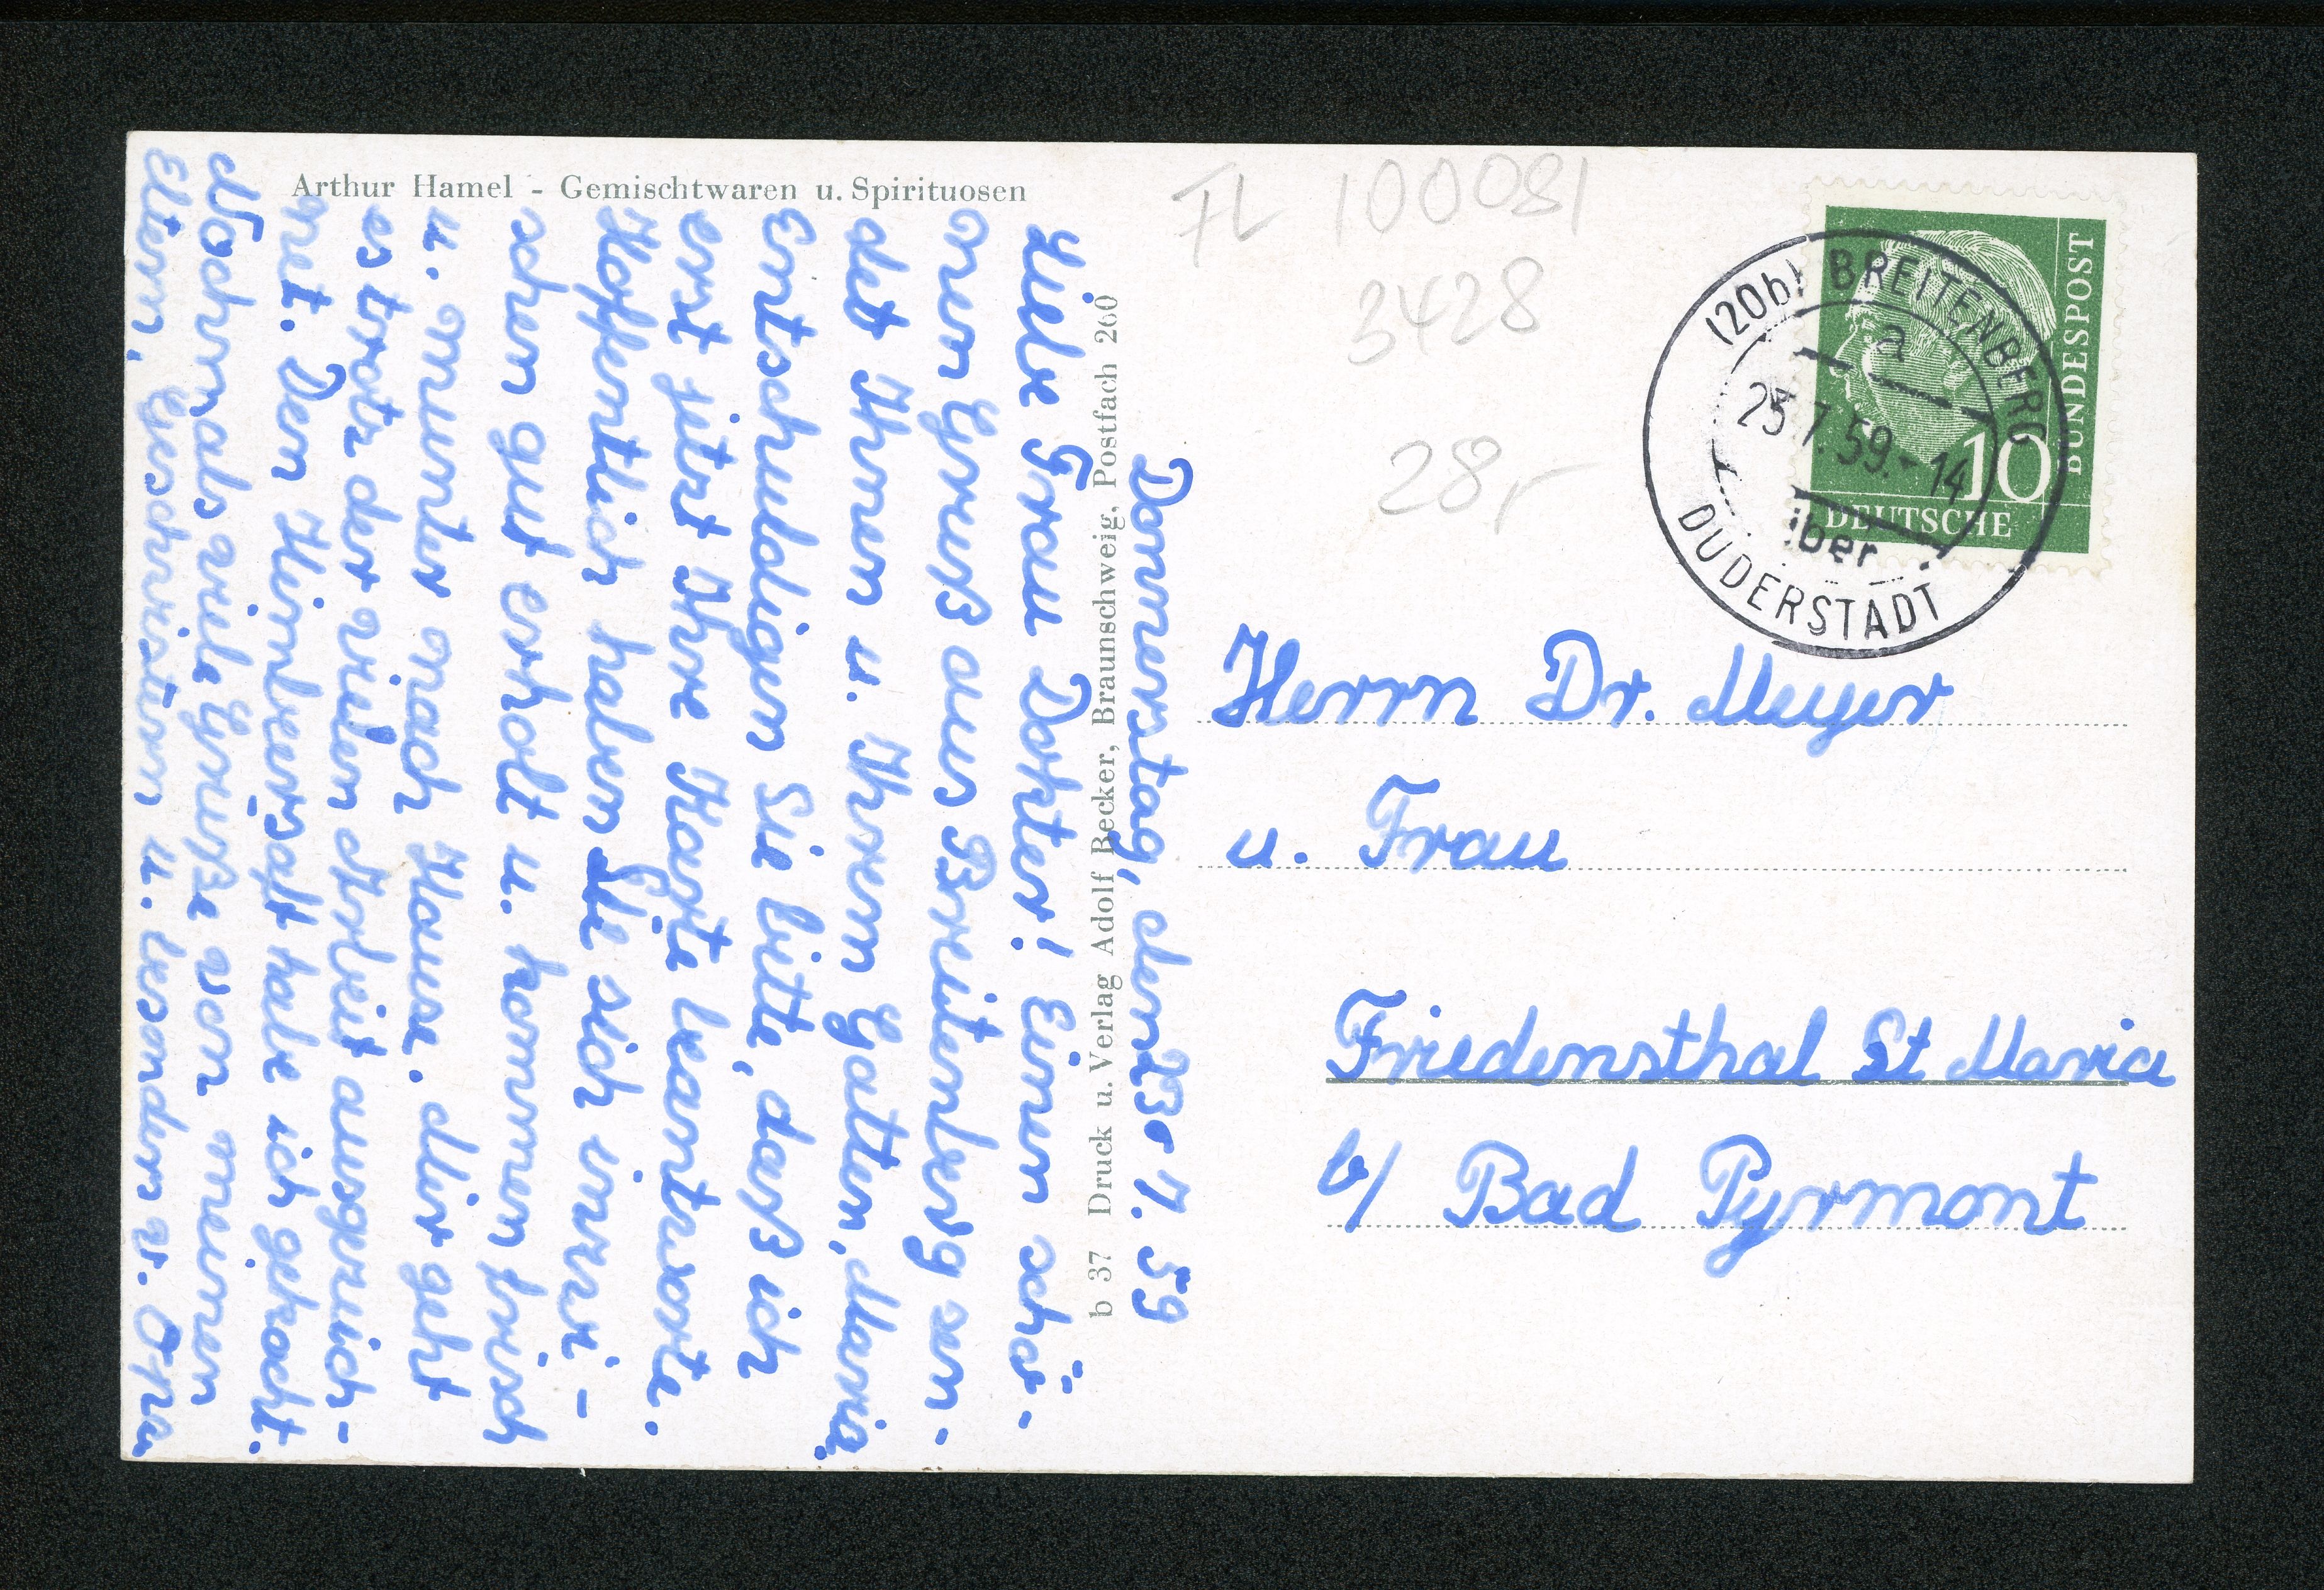 Arthur Hamel - Gemischtwaren u. Spirituosen
Donnerstag, den 23. 7. 59
Liebe Frau Dokter! Einen schö-
nen Gruß aus Breitenberg sen-
det Ihnen u. Ihrem Gatten, Maria.
Entschuldigen Sie bitte, daß ich
erst jetzt Ihre Karte beantworte.
Hoffentlich haben Sie sich inzwi-
schen gut erholt u. kommen frisch
u. munter nach Hause. Hier geht
es trotz der vielen Arbeit ausgezeich-
net. Den Himbeersaft habe ich gekocht.
Nochmals viele Grüße von meinen
Eltern, Geschwistern u. besonders v. Opa.
b 37 Druck u. Verlag Adolf Becker, Braunschweig, Postfach 260
FL 100081
3428
28,-
DEUTSCHE BUNDESPOST
10
(20b) BREITENBERG
a
23.7.59.-14
über
DUDERSTADT
Herrn Dr. Meyer
u. Frau
Friedensthal St Maria
b/ Bad Pyrmont